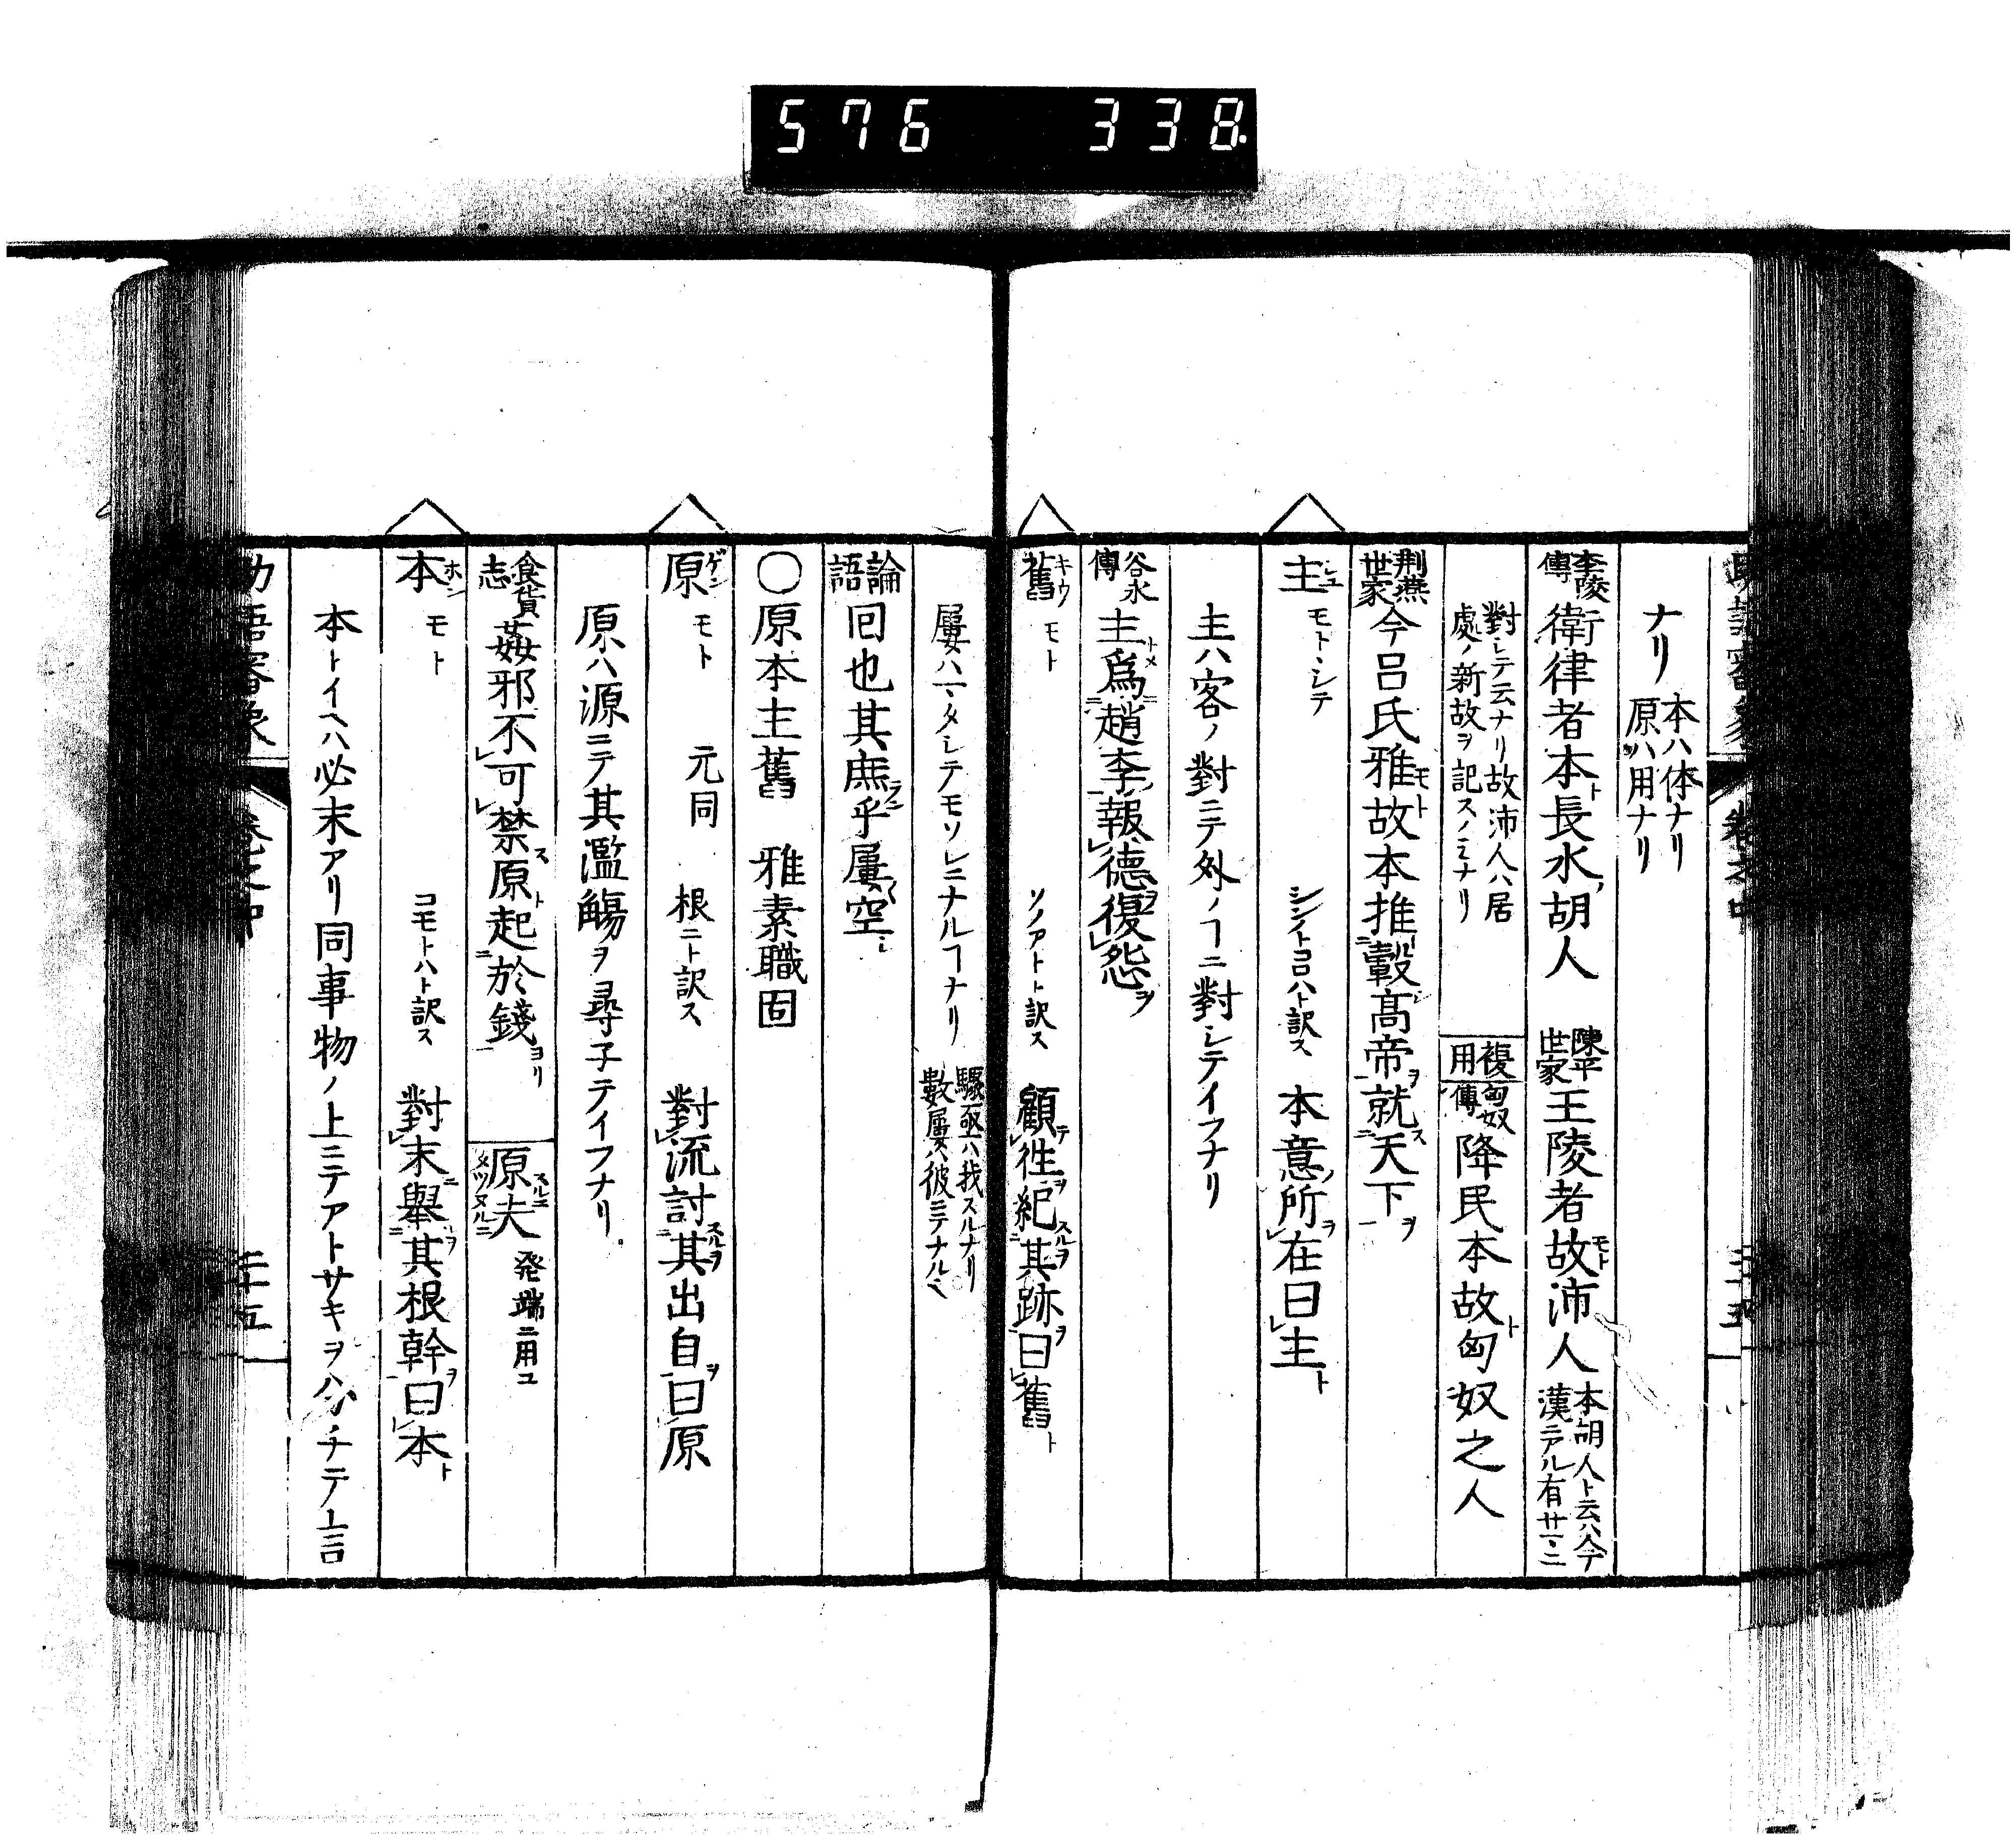 576 338
ナリ 本ハ体ナリ 原ハ用ナリ
李陵傳 衛律者本ト長水ノ胡人 陳平世家 王陵者故モト沛人 本胡人ト云ハ今漢ニアル有サマニ
對シテ云ナリ故沛人ハ居處ノ新故ヲ記スノミナリ 複用 匈奴傳 降民本故ト匈奴之人
荆燕世家 今呂氏雅モト故ト本推轂高帝ヲ就ス天下ヲ
主シユ モトヽシテ シンノトコロハト訳ス 本意ノ所ヲ在曰主ト
主ハ客ノ對ニテ外ノヿニ對シテイフナリ
谷永傳 主トメ爲ニ趙李ノ報德ヲ復怨ヲ
舊キウ モト ソノアトト訳ス 顧テ徃ヲ紀スルヲ其跡ヲ曰舊ト
屢ハ一タシテモソレニナルヿナリ 驟亟ハ我スルナリ 數屢ハ彼ニテナルヽ
論語 回也其庶ラニ乎屢空シ
〇原本主舊 雅素職固
原ゲン モト 元同 根ニト訳ス 對流討スルヲ其出自ヲ曰原
原ハ源ニテ其濫觴ヲ尋子テイフナリ
食貨志 姦邪不可禁ス原ト起於錢ヨリ 原スルニ夫 発端ニ用ユ
本ホン モト コモトハト訳ス 對末ニ舉ヲ其根幹ヲ曰本ト
本トイヘハ必末アリ同事物ノ上ニテアトサキヲハ分チテ上言